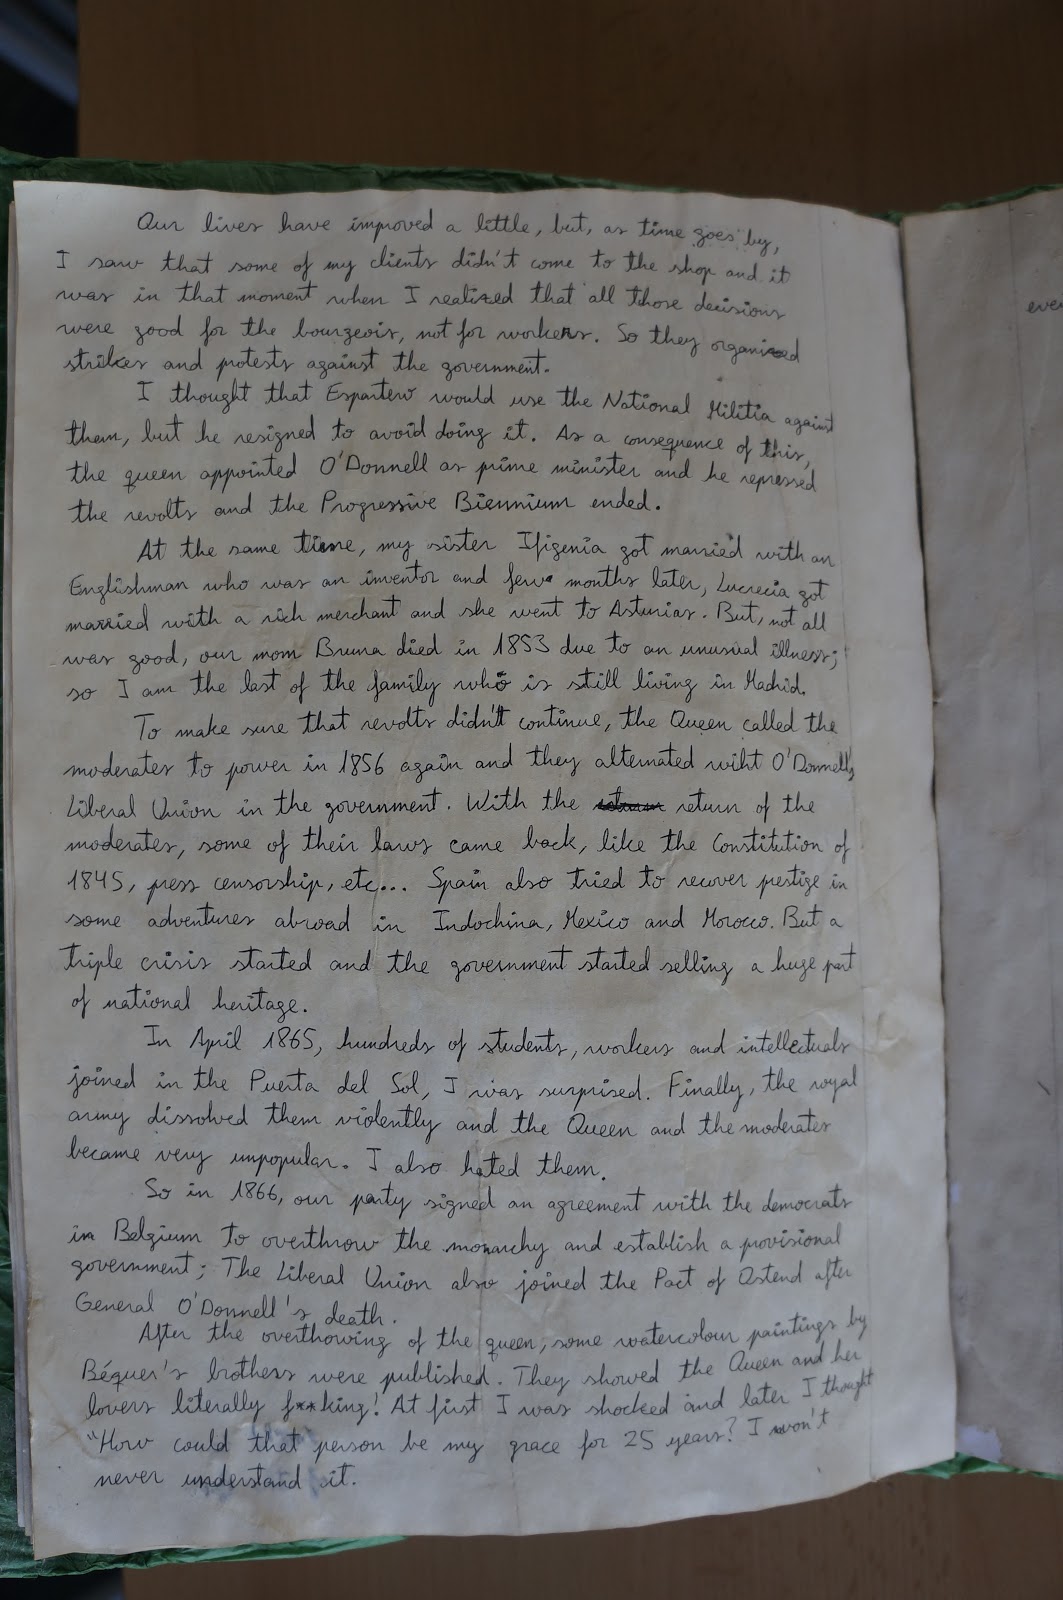 Our lives have improved a little, but, as time goes by,
I saw that some of my clients didn't come to the shop and it
was in that moment when I realized that all those decisions
were good for the bourgeois, not for workers. So they organized
strikes and protests against the government.
I thought that Espartero would use the National Militia against
them, but he resigned to avoid doing it. As a consequence of this,
the queen appointed O'Donnell as prime minister and he repressed
the revolts and the Progressive Biennium ended.
At the same time, my sister Ifigenia got married with an
Englishman who was an inventor and few months later, Lucrecia got
married with a rich merchant and she went to Asturias. But, not all
was good, our mom Bruna died in 1853 due to an unusual illness;
so I am the last of the family who is still living in Madrid.
To make sure that revolts didn't continue, the Queen called the
moderates to power in 1856 again and they alternated wiht O'Donnell's
Liberal Union in the government. With the return of the
moderates, some of their laws came back, like the Constitution of
1845, press censorship, etc... Spain also tried to recover prestige in
some adventures abroad in Indochina, Mexico and Morocco. But a
triple crisis started and the government started selling a huge part
of national heritage.
In April 1865, hundreds of students, workers and intellectuals
joined in the Puerta del Sol, I was surprised. Finally, the royal
army dissolved them violently and the Queen and the moderates
became very unpopular. I also hated them.
So in 1866, our party signed an agreement with the democrats
in Belgium to overthrow the monarchy and establish a provisional
government; The Liberal Union also joined the Pact of Ostend after
General O'Donnell's death.
After the overthowing of the queen, some watercolour paintings by
Béquer's brothers were published. They showed the Queen and her
lovers literally f**king! At first I was shocked and later I thought
"How could that person be my grace for 25 years? I won't
never understand it.